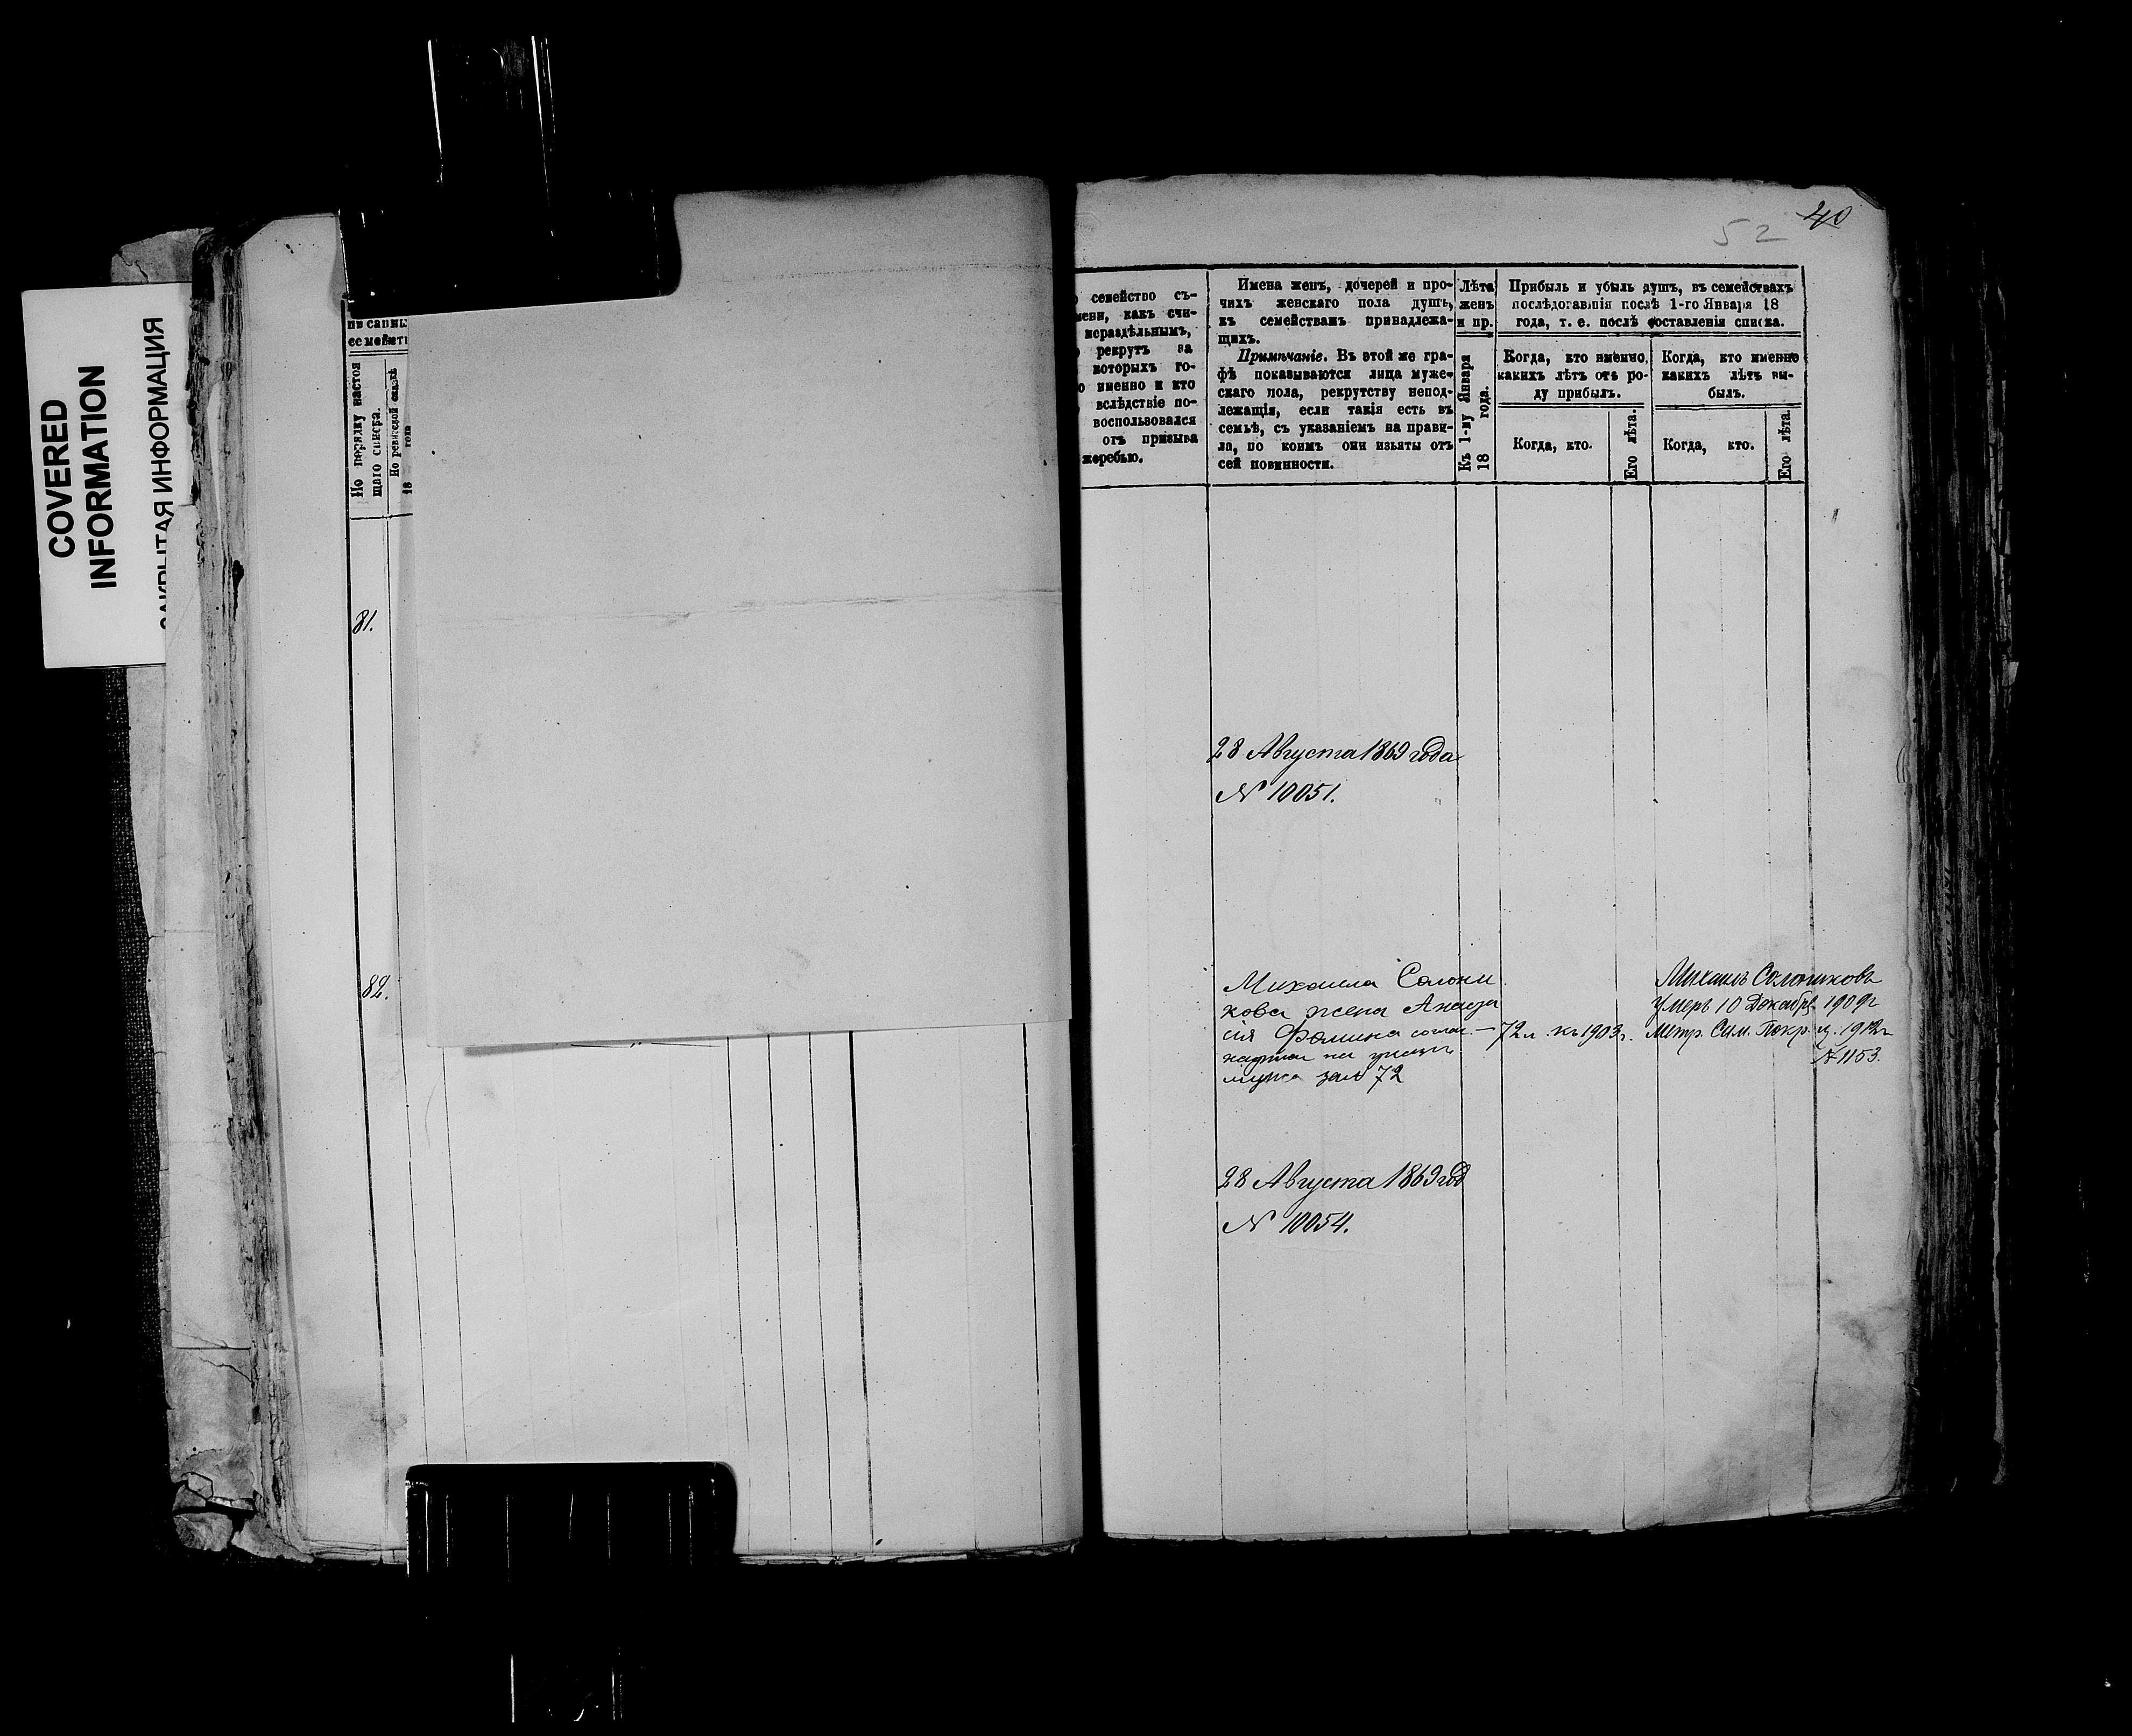 COVERED
INFORMATION
ЗАКРЫТАЯ ИНФОРМАЦИЯ
семейств
По порядку настоя
щаго списка.
По ревизской сказкѣ
18 года
81.
82.
52 40
семейство съ-
мени, какъ счи-
нераздѣльнымъ,
рекрутъ за
которыхъ го-
именно и кто
вслѣдствіе по-
воспользовался
отъ призыва
жеребью.
Имена женъ, дочерей и про-
чихъ женскаго пола душъ,
къ семействамъ принадлежа-
щихъ.
Примѣчаніе. Въ этой же гра-
фѣ показываются лица муже-
скаго пола, рекрутству непод-
лежащія, если такія есть въ
семьѣ, съ указаніемъ на прави-
ла, по коимъ они изъяты отъ
сей повинности.
Лѣта
женъ
и пр.
Къ 1-му Января
18 года.
Прибыль и убыль душъ, въ семействахъ
послѣдовавшія послѣ 1-го Января 18
года, т. е. послѣ составленія списка.
Когда, кто именно,
какихъ лѣтъ отъ ро-
ду прибылъ.
Когда, кто.
Его лѣта.
Когда, кто именно
какихъ лѣтъ вы-
былъ.
Когда, кто.
Его лѣта.
28 Августа 1869 года
№ 10051.
Михаила Солони
кова жена
Фомина — 72 л. къ 1903 г.
72
Михаилъ Солониковъ
умеръ 10 Декабр. 1909 г
Метр. Сим. Покр. ц. 1912 г
№ 1153.
28 Августа 1869 год
№ 10054.